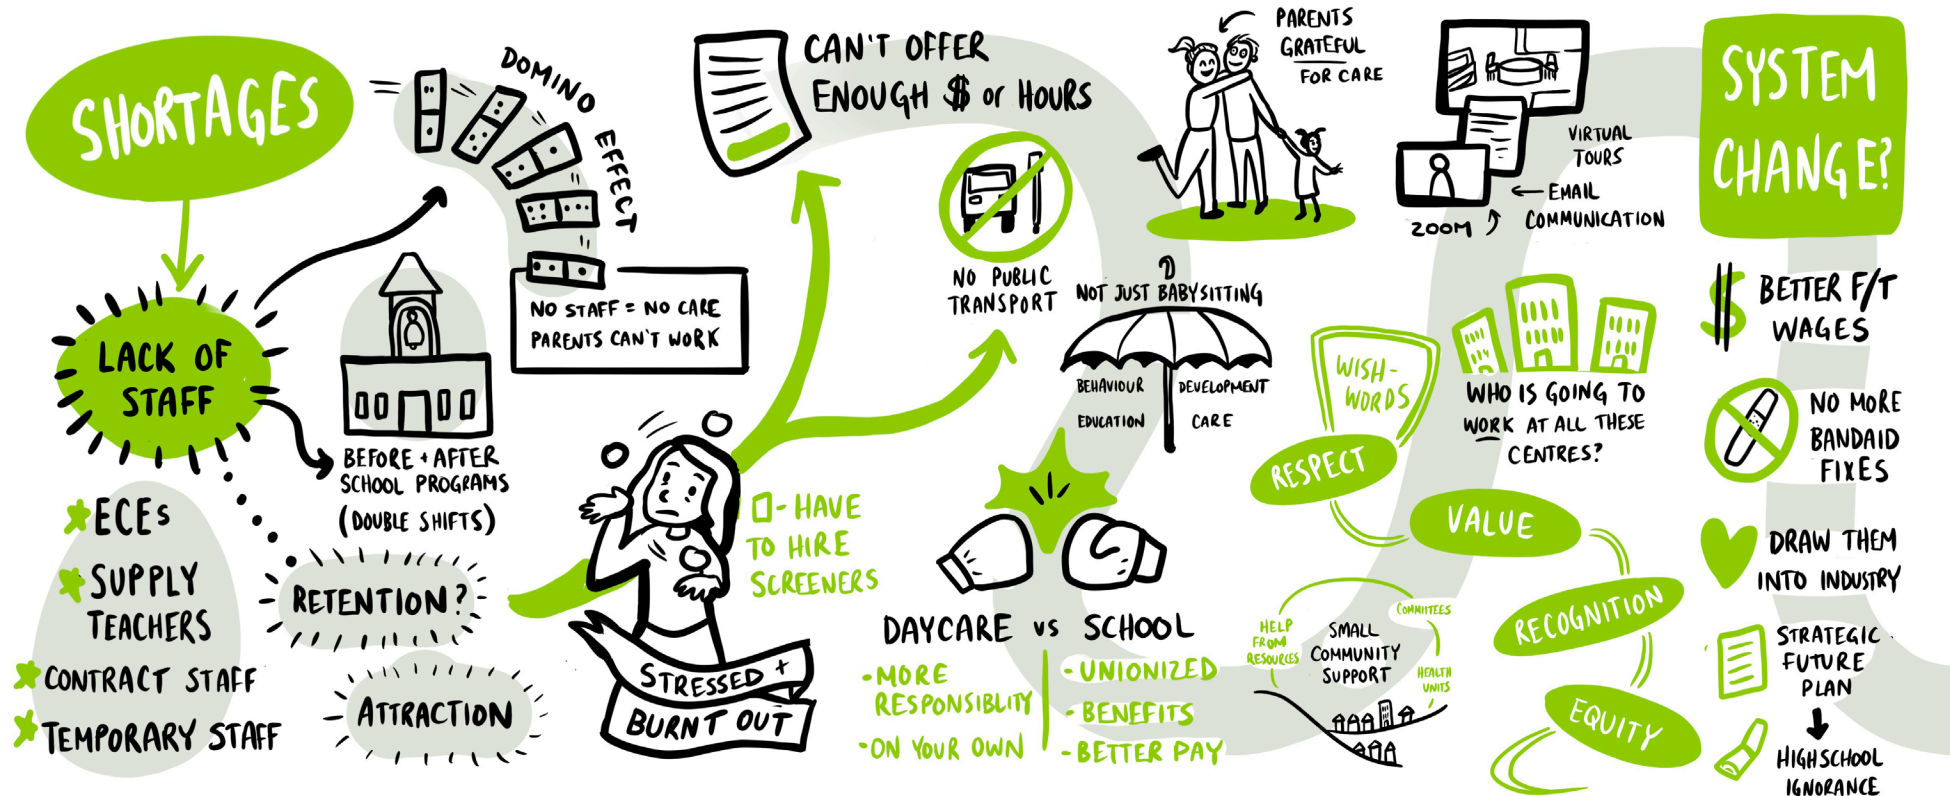 SHORTAGES
LACK OF
STAFF
ECEs
SUPPLY
TEACHERS
CONTRACT STAFF
TEMPORARY STAFF
DOMINO EFFECT
NO STAFF = NO CARE
PARENTS CAN'T WORK
BEFORE + AFTER
SCHOOL PROGRAMS
(DOUBLE SHIFTS)
RETENTION?
ATTRACTION
STRESSED +
BURNT OUT
- HAVE
TO HIRE
SCREENERS
CAN'T OFFER
ENOUGH $ or HOURS
NO PUBLIC
TRANSPORT
NOT JUST BABYSITTING
BEHAVIOUR
EDUCATION
DEVELOPMENT
CARE
DAYCARE vs SCHOOL
- MORE
RESPONSIBLITY
- ON YOUR OWN
- UNIONIZED
- BENEFITS
- BETTER PAY
PARENTS
GRATEFUL
FOR CARE
VIRTUAL
TOURS
EMAIL
COMMUNICATION
ZOOM
WISH-
WORDS
RESPECT
VALUE
RECOGNITION
EQUITY
WHO IS GOING TO
WORK AT ALL THESE
CENTRES?
HELP
FROM
RESOURCES
SMALL
COMMUNITY
SUPPORT
COMMITTEES
HEALTH
UNITS
SYSTEM
CHANGE?
$ BETTER F/T
WAGES
NO MORE
BANDAID
FIXES
DRAW THEM
INTO INDUSTRY
STRATEGIC
FUTURE
PLAN
HIGHSCHOOL
IGNORANCE